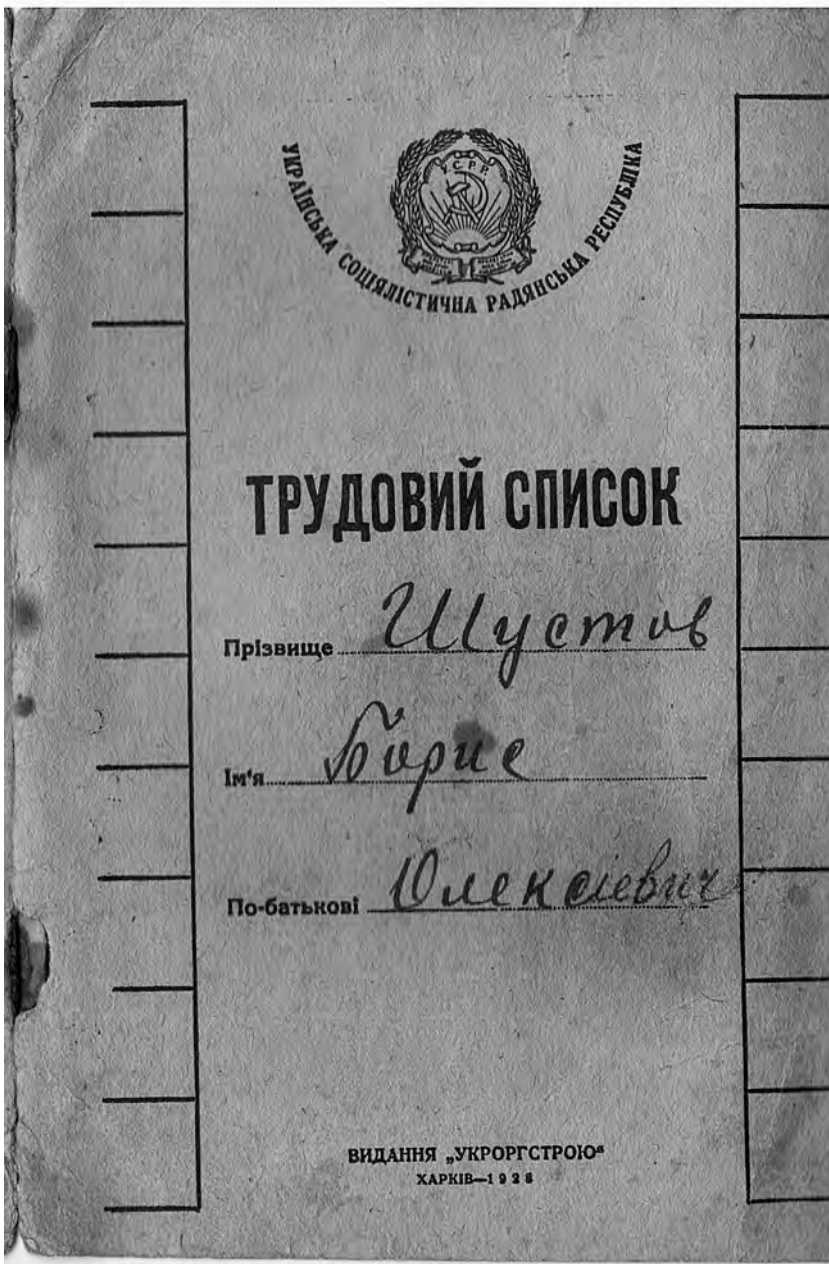 У.С.Р.Р.
УКРАЇНСЬКА СОЦІЯЛІСТИЧНА РАДЯНСЬКА РЕСПУБЛІКА
ТРУДОВИЙ СПИСОК
Прізвище Шустов
Ім'я Борис
По-батькові Олексієвич
ВИДАННЯ „УКРОРГСТРОЮ“
ХАРКІВ—1928